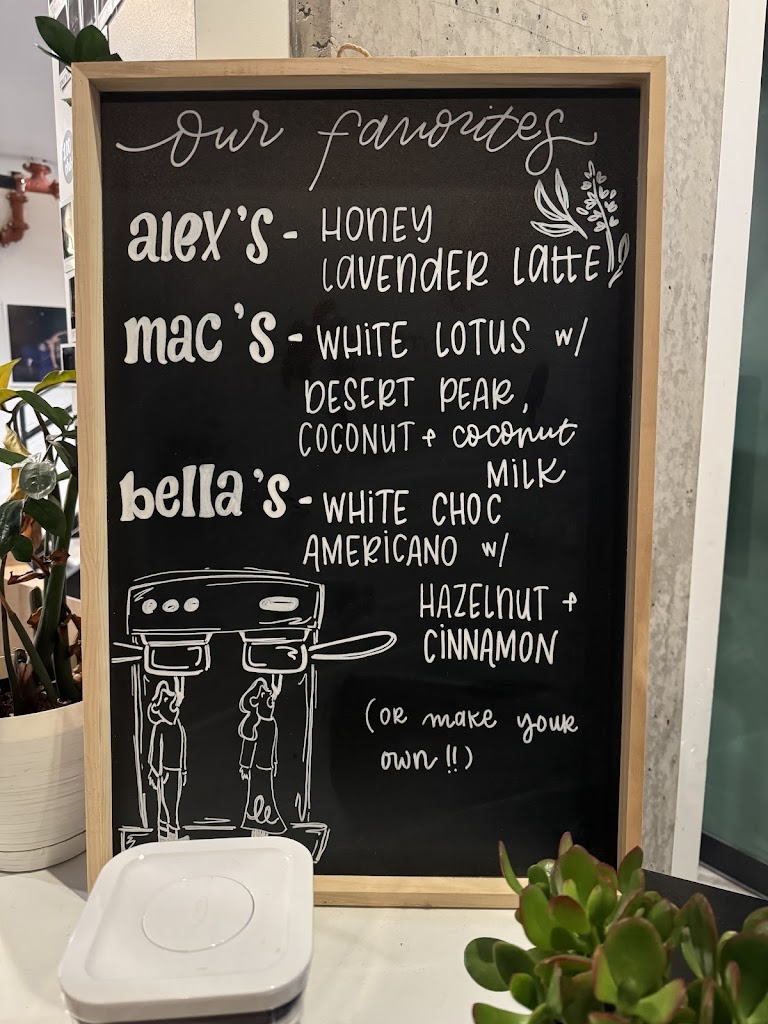 our favorites
alex's - HONEY
LAVENDER LATTE
mac's - WHITE LOTUS w/
DESERT PEAR,
COCONUT + coconut
MILK
bella's - WHITE CHOC
AMERICANO w/
HAZELNUT +
CINNAMON
(OR make your
own!!)